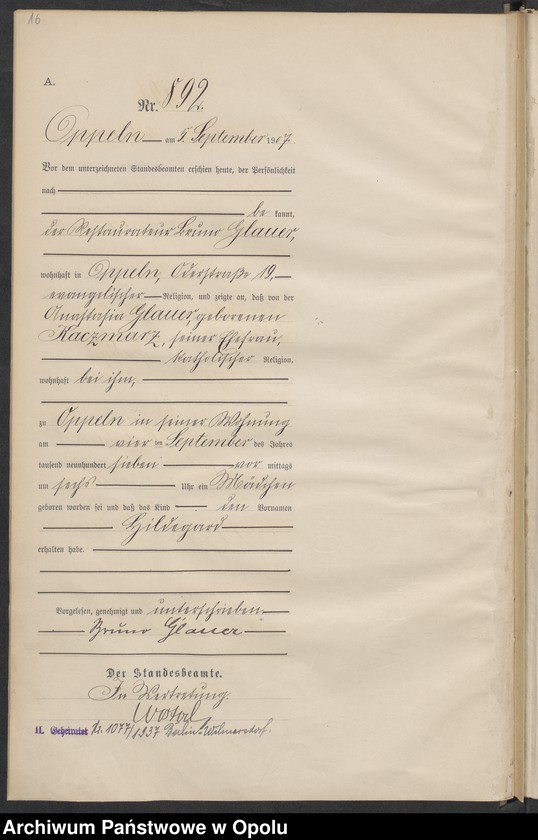 16
A.
Nr. 892.
Oppeln am 5. September 1907.
Vor dem unterzeichneten Standesbeamten erschien heute, der Persönlichkeit
nach
be kannt,
der Restaurateur Bruno Glauer,
wohnhaft in Oppeln, Oderstraße 19,
evangelischer Religion, und zeigte an, daß von der
Anastasia Glauer, geborenen
Kaczmarz, seiner Ehefrau,
katholischer Religion,
wohnhaft bei ihm,
zu Oppeln in seiner Wohnung
am vier ten September des Jahres
tausend neunhundert sieben vor mittags
um sechs Uhr ein Mädchen
geboren worden sei und daß das Kind den Vornamen
Hildegard
erhalten habe.
Vorgelesen, genehmigt und unterschrieben
Bruno Glauer
Der Standesbeamte.
In Vertretung.
H. Geheiratet Nr. 1077/1937 Berlin-Wilmersdorf.
Archiwum Państwowe w Opolu